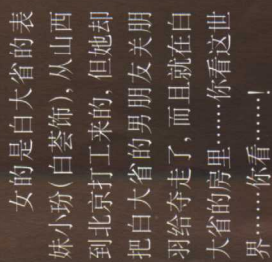 女的是白大省的表
妹小玢(白荟饰),从山西
到北京打工来的,但她却
把白大省的男朋友关朋
羽给夺走了,而且就在白
大省的房里……你看这世
界……你看……!